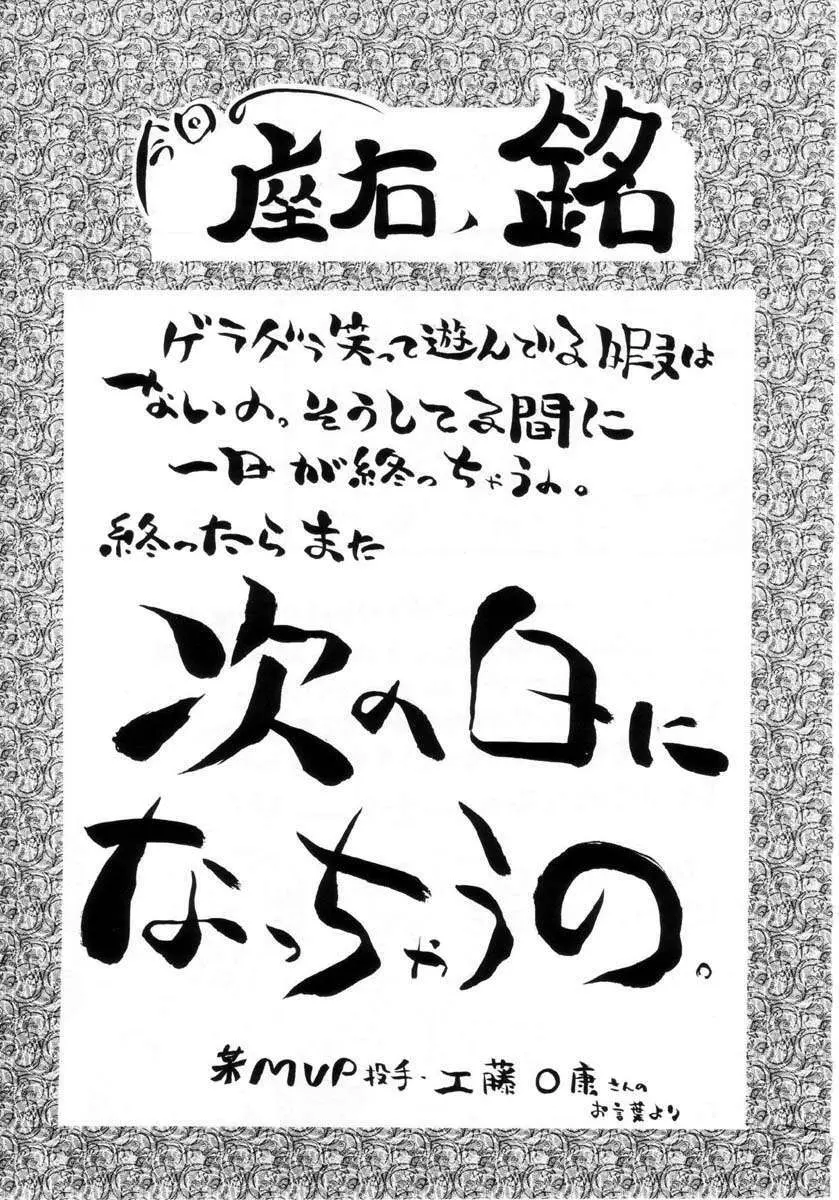 今回の
座右ノ銘
ゲラゲラ笑って遊んでる暇は
ないの。そうしてる間に
一日が終っちゃうの。
終ったらまた
次の日に
なっちゃうの。
某MVP投手・工藤○康さんの
お言葉より